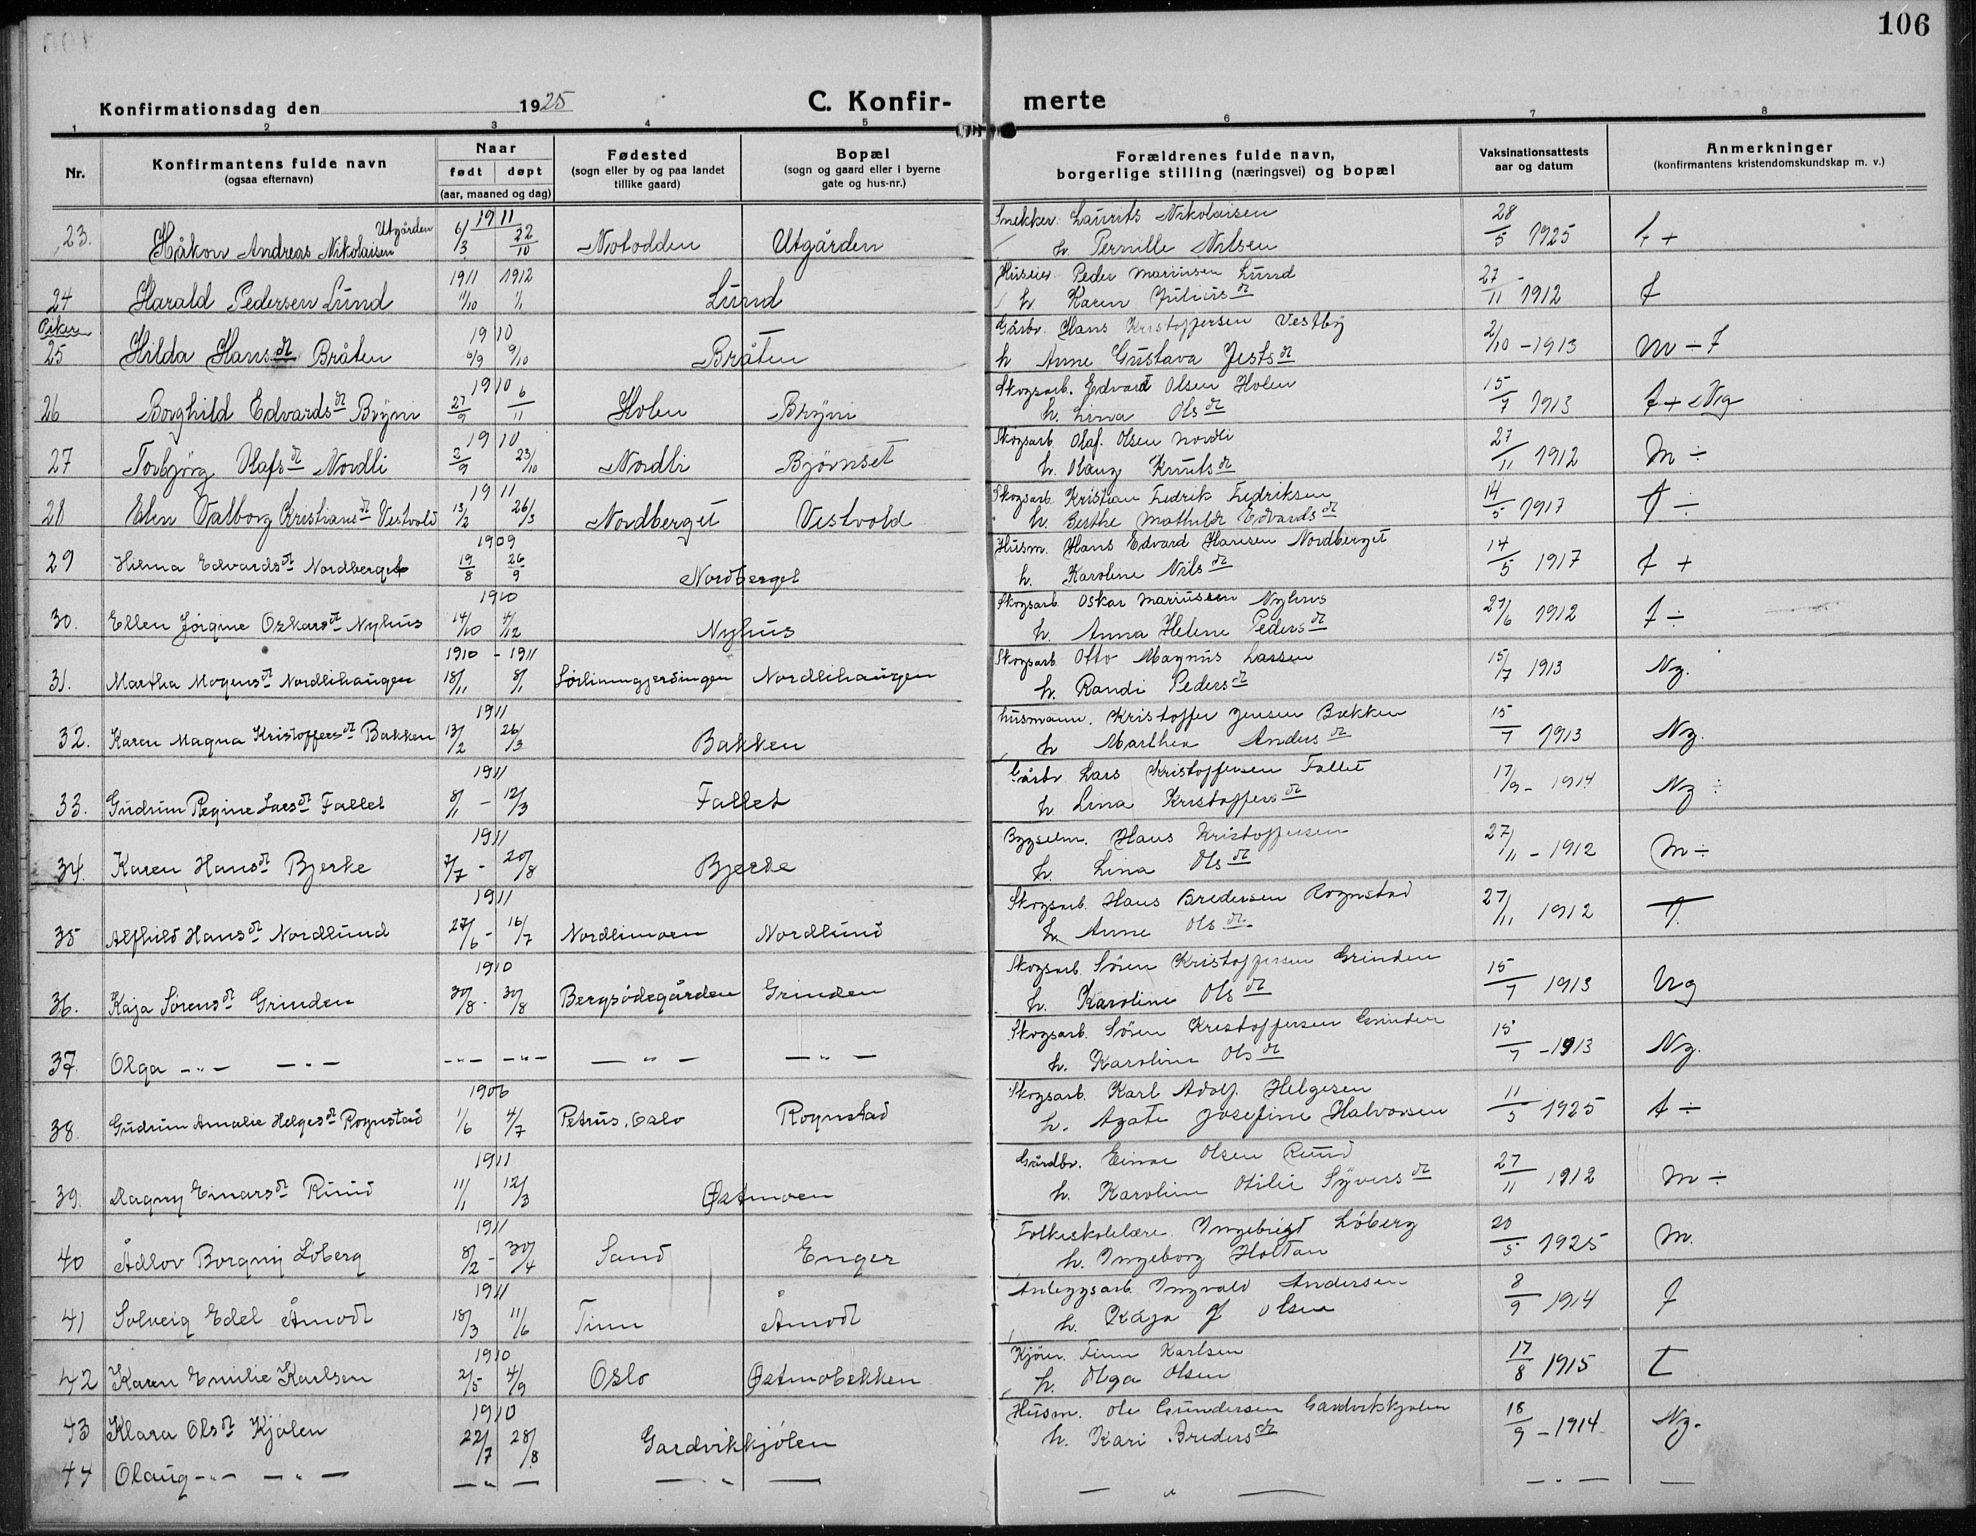 106
Konfirmationsdag den 1925 C. Konfir- merte
1 2 3 4 5 6 7 8
Nr. Konfirmantens fulde navn (ogsaa efternavn) Naar født døpt (aar, maaned og dag) Fødested (sogn eller by og paa landet tillike gaard) Bopæl (sogn og gaard eller i byerne gate og hus-nr.) Forældrenes fulde navn, borgerlige stilling (næringsvei) og bopæl Vaksinationsattests aar og datum Anmerkninger (konfirmantens kristendomskundskap m. v.)
Utgården 1911 Snekker. Laurits Nikolaisen
23. Håkon Andreas Nikolaisen 6/3 22/10 Notodden Utgården h. Pernille Nilsen 28/5 1925
1911 1912 Huseier Peder Mariusen Lund
24 Harald Pedersen Lund 11/10 1/1 Lund h Karen Julius dt 27/11 1912
Piker 1910 Gårbr. Hans Kristoffersen Vestby
25 Hilda Hans dt Bråten 6/9 9/10 Bråten h Anne Gustava Jests dt 2/10 - 1913 m ÷
1910 Skogsarb. Edvard Olsen Holen
26 Borghild Edvards dt Bryni 27/9 6/11 Holen Bryni h. Lina Ols dt 15/7 1913
1910 Skogsarb. Olaf Olsen Nordli
27 Torbjørg Olafs dt Nordli 2/9 23/10 Nordli Bjørnset h. Olaug Knuts dt 27/11 1912 M ÷
1911 Skogsarb. Kristian Fredrik Fredriksen
28 Elen Valborg Kristians dt Vestvold 13/2 26/3 Nordberget Vestvold h. Berthe Mathilde Edvards dt 14/5 1917
1909 Husm. Hans Edvard Hansen Nordberget
29 Hilma Edvards dt Nordberget 19/8 26/9 Nordberget h. Karoline Nils dt 14/5 1917
1910 Skogsarb. Oskar Mariussen Nyhus
30. Ellen Jørgine Oskars dt Nyhus 14/10 4/12 Nyhus h. Anna Helene Peders dt 27/6 1912
1910 - 1911 Skogsarb Otto Magnus Larsen
31. Martha Mogens dt Nordlihaugen 18/11 8/1 Nordlihaugen h. Randi Peders dt 15/7 1913 Ng.
1911 husmann. Kristoffer Jensen Bækken
32. Karen Magna Kristoffers dt Bakken 13/2 26/3 Bakken h Marthea Anders dt 15/7 1913 Ng.
1911 Gårbr Lars Kristoffersen Fallet
33. Gudrun Regine Lars dt Fallet 8/1 - 12/3 Fallet h Lina Kristoffers dt 17/9 - 1914 Ng ÷
1911 Bygselm. Hans Kristoffersen
34. Karen Hans dt Bjerke 7/7 - 20/8 Bjerke h. Lina Ols dt 27/11 - 1912 M ÷
1911 Skogsarb. Hans Bredersen Rognstad
35 Alfhild Hans dt Nordlund 27/6 - 16/7 Nordlimoen Nordlund h. Anne Ols dt. 27/11 1912
1910 Skogsarb. Sören Kristoffersen Grinden
36. Kaja Sørens dt Grinden 30/8 - 30/8 Bergsødegården Grinden h. Karoline Ols dt 15/7 1913 Ng
Skogsarb. Sören Kristoffersen Grinden
37. Olga — „ — — „ — — „ — — „ — — „ — — „ — h. Karoline Ols dt 15/7 - 1913 Ng.
1906 Skogsarb. Karl Adolf Helgesen
38. Gudrun Amalie Helges dt Rognstad 1/6 4/7 Petrus, Oslo Rognstad h. Agate Josefine Halvorsen 11/5 1925
1911 Gårdbr. Einar Olsen Ruud
39. Ragny Einars dt Ruud 11/1 12/3 Østmoen h. Karoline Otilie Syvers dt 27/11 1912 M ÷
1911 Folkeskolelære. Ingebrigt Löberg
40 Ådlov Borgny Löberg 8/2 - 30/4 Sand Enger h. Ingeborg Holtan 20/5 1925 M.
1911 Anleggsarb. Ingvald Andersen
41 Solveig Edel Åmodt 18/3 11/6 Tinn Åmodt h. Kaja J Olsen 8/9 1914
1910 Kjørr. Finn Karlsen
42 Karen Emilie Karlsen 2/5 4/9 Oslo Østmobekken h. Olga Olsen 17/8 1915
1910 Husm. Ole Gundersen Gardvikskjølen
43 Klara Ols dt Kjølen 22/7 28/8 Gardvikkjölen h. Kari Breders dt 18/9 - 1914 Ng.
44 Olaug — „ — — „ — — „ — — „ — — „ — — „ — —